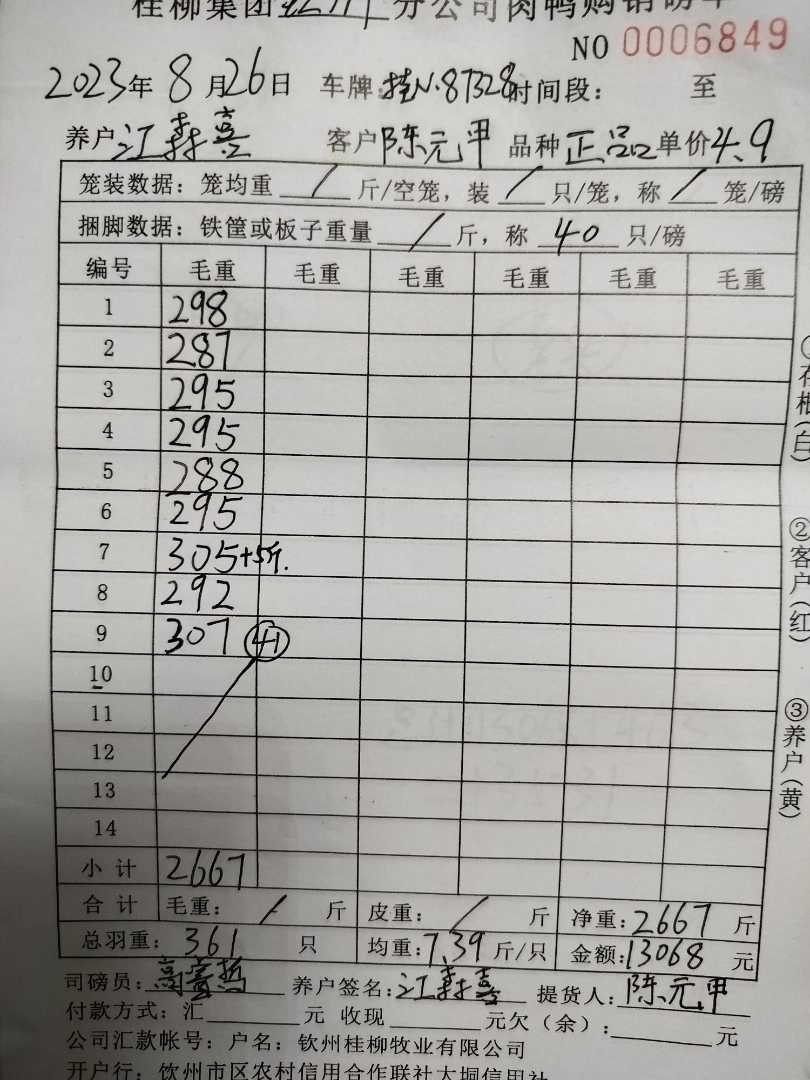 桂柳集团 分公司肉鸭购销磅单
NO 0006849
2023年 8月26日 车牌:桂N·87328时间段: 至
养户 江森喜 客户 陈元甲 品种 正品 单价4.9
笼装数据:笼均重 / 斤/空笼,装 / 只/笼,称 / 笼/磅
捆脚数据:铁筐或板子重量 / 斤,称 40 只/磅
编号 毛重 毛重 毛重 毛重 毛重 毛重
1 298
2 287
3 295
4 295
5 288
6 295
7 305+5斤.
8 292
9 307 41
10
11
12
13
14
小计 2667
合计 毛重: / 斤 皮重: / 斤 净重:2667 斤
总羽重: 361 只 均重:7.39 斤/只 金额:13068 元
司磅员: 养户签名:江森喜 提货人:陈元甲
付款方式:汇 元 收现 元欠(余): 元
公司汇款帐号:户名:钦州桂柳牧业有限公司
开户行:钦州市区农村信用合作联社大垌信用社
①存根(白)
②客户(红)
③养户(黄)